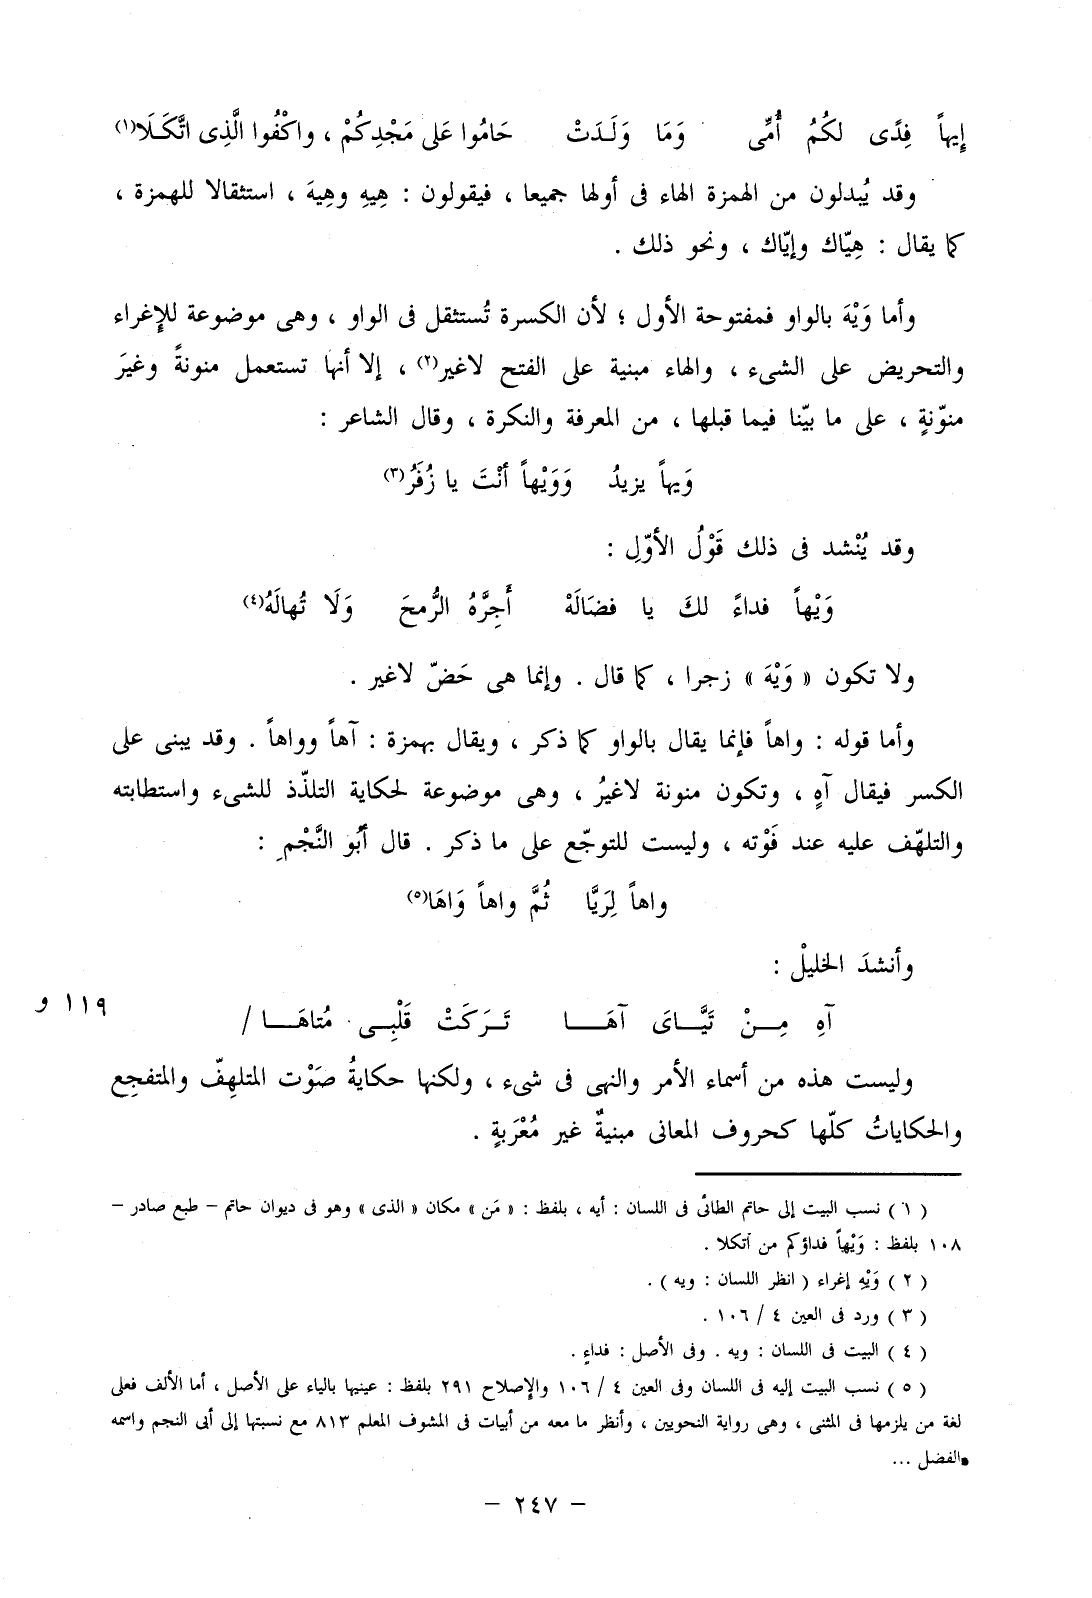 إِيهاً فِدًى لكُمُ أُمِّى وَمَا وَلَدَتْ حَامُوا عَلى مَجْدِكُمْ ، واكْفُوا الَّذِى اتَّكَلَا(١)
وقد يُبدلون من الهمزة الهاء فى أولها جميعا ، فيقولون : هِيهِ وهِيهَ ، استثقالا للهمزة ،
كما يقال : هِيّاك وإيّاك ، ونحو ذلك .
وأما وَيْهَ بالواو فمفتوحة الأول ؛ لأن الكسرة تُستثقل فى الواو ، وهى موضوعة للإغراء
والتحريض على الشىء ، والهاء مبنية على الفتح لاغير(٢) ، إلا أنها تستعمل منونةً وغيرَ
منوّنةٍ ، على ما بيّنا فيما قبلها ، من المعرفة والنكرة ، وقال الشاعر :
وَيهاً يزيدُ وَوَيْهاً أنْتَ يا زُفَرُ(٣)
وقد يُنْشد فى ذلك قَوْلُ الأوّلِ :
وَيْهاً فداءً لكَ يا فضَالَهْ أَجِرَّهُ الرُّمحَ وَلَا تُهالَهُ(٤)
ولا تكون « وَيْهَ » زجرا ، كما قال . وإنما هى حَضّ لاغير .
وأما قوله : واهاً فإنما يقال بالواو كما ذكر ، ويقال بهمزة : آهاً وواهاً . وقد يبنى على
الكسر فيقال آهٍ ، وتكون منونة لاغيرُ ، وهى موضوعة لحكاية التلذّذ للشىء واستطابته
والتلهّف عليه عند فَوْته ، وليست للتوجّع على ما ذكر . قال أبُو النَّجْمِ :
واهاً لِرَيَّا ثُمَّ واهاً وَاهَا(٥)
وأنشدَ الخليلْ :
آهِ مِــنْ تَيَّــاىَ آهَـــا تَــرَكَتْ قَلْبِــى مُتاهَــا /
١١٩ و
وليست هذه من أسماء الأمر والنهى فى شىء ، ولكنها حكايةُ صَوْت المتلهِفّ والمتفجِع
والحكاياتُ كلّها كحروف المعانى مبنيةٌ غير مُعْرَبةٍ .
( ١ ) نسب البيت إلى حاتم الطائى فى اللسان : أيه ، بلفظ : « مَن » مكان « الذى » وهو فى ديوان حاتم – طبع صادر –
١٠٨ بلفظ : وَيْهاً فداؤكم من اتكلا .
( ٢ ) وَيْهِ إغراء ( انظر اللسان : ويه ) .
( ٣ ) ورد فى العين ٤ / ١٠٦ .
( ٤ ) البيت فى اللسان : ويه . وفى الأصل : فداءٍ .
( ٥ ) نسب البيت إليه فى اللسان وفى العين ٤ / ١٠٦ والإصلاح ٢٩١ بلفظ : عينيها بالياء على الأصل ، أما الألف فعلى
لغة من يلزمها فى المثنى ، وهى رواية النحويين ، وأنظر ما معه من أبيات فى المشوف المعلم ٨١٣ مع نسبتها إلى أبى النجم واسمه
الفضل ...
– ٢٤٧ –